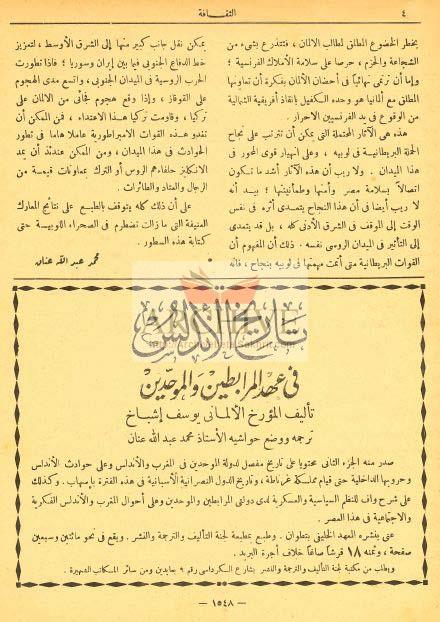 ٤
الثقافة
بخطر الخضوع المطلق لطالب الالمان، فتتذرع بشىء من
الشجاعة والحزم، حرصاً على سلامة الأملاك الفرنسية؛
وإما أن ترتمى نهائياً فى أحضان الألمان بفكرة أن تعاونها
المطلق مع ألمانيا هو وحده الكفيل بانقاذ أفريقية الشمالية
من الوقوع فى يد الفرنسيين الاحرار.
هذه هى الآثار المحتملة التى يمكن أن تترتب على نجاح
الحملة البريطانية فى لوبيه، وعلى انهيار قوى المحور فى
هذا الميدان. ولا ريب أن هذه الآثار أشد ما تكون
اتصالاً بسلامة مصر وأمنها وطمأنينتها؛ بيد أنه
لا ريب أيضا فى أن هذا النجاح يتعدى أثره فى نفس
الوقت إلى الموقف فى الشرق الأدنى كله، بل قد يتعدى
إلى التأثير فى الميدان الروسى نفسه. ذلك أن المفهوم أن
القوات البريطانية متى أتمت مهمتها فى لوبيه بنجاح، فانه
يمكن نقل جانب كبير منها إلى الشرق الأوسط، لتعزيز
خط الدفاع الجنوبى فيما بين إيران وسوريا؛ فاذا تطورت
الحرب الروسية فى الميدان الجنوبى، واتسع مدى الهجوم
على القوقاز، وإذا وقع هجوم فجائى من الألمان على
تركيا، وقاومت تركيا هذا الاعتداء، فمن الممكن أن
تغدو هذه القوات الامبراطورية عاملا هاما فى تطور
الحوادث فى هذا الميدان، ومن الممكن عندئذ أن يمد
الانكليز حلفاءهم الروس أو الترك بمعاونات قيمة من
الرجال والعتاد والطائرات.
على أن ذلك كله يتوقف بالطبع على نتائج المعارك
العنيفة التى ما زالت تضطرم فى الصحراء اللوبية حتى
كتابة هذه السطور.
محمد عبد الله عنان
تاريخ الأندلس
فى عهد المرابطين والموحدين
تأليف المؤرخ الألمانى يوسف إشباخ
ترجمه ووضع حواشيه الأستاذ محمد عبد الله عنان
صدر منه الجزء الثانى محتويا على تاريخ مفصل لدولة الموحدين فى المغرب والأندلس وعلى حوادث الأندلس
وحروبها الداخلية حتى قيام مملكة غرناطة، وتاريخ الدول النصرانية الأسبانية فى هذه الفترة بإسهاب. وكذلك
على شرح واف للنظم السياسية والعسكرية لدى دولتى المرابطين والموحدين وعلى أحوال المغرب والأندلس الفكرية
والاجتماعية فى هذا العصر.
عنى بنشره المعهد الخليفى بتطوان. وطبع بمطبعة لجنة التأليف والترجمة والنشر. ويقع فى نحو مائتين وسبعين
صفحة، وثمنه ١٨ قرشاً صاغاً خلاف أجرة البريد.
ويطلب من مكتبة لجنة التأليف والترجمة والنشر بشارع الكرداسى رقم ٩ عابدين ومن سائر المكاتب الشهيرة.
— ١٥٤٨ —